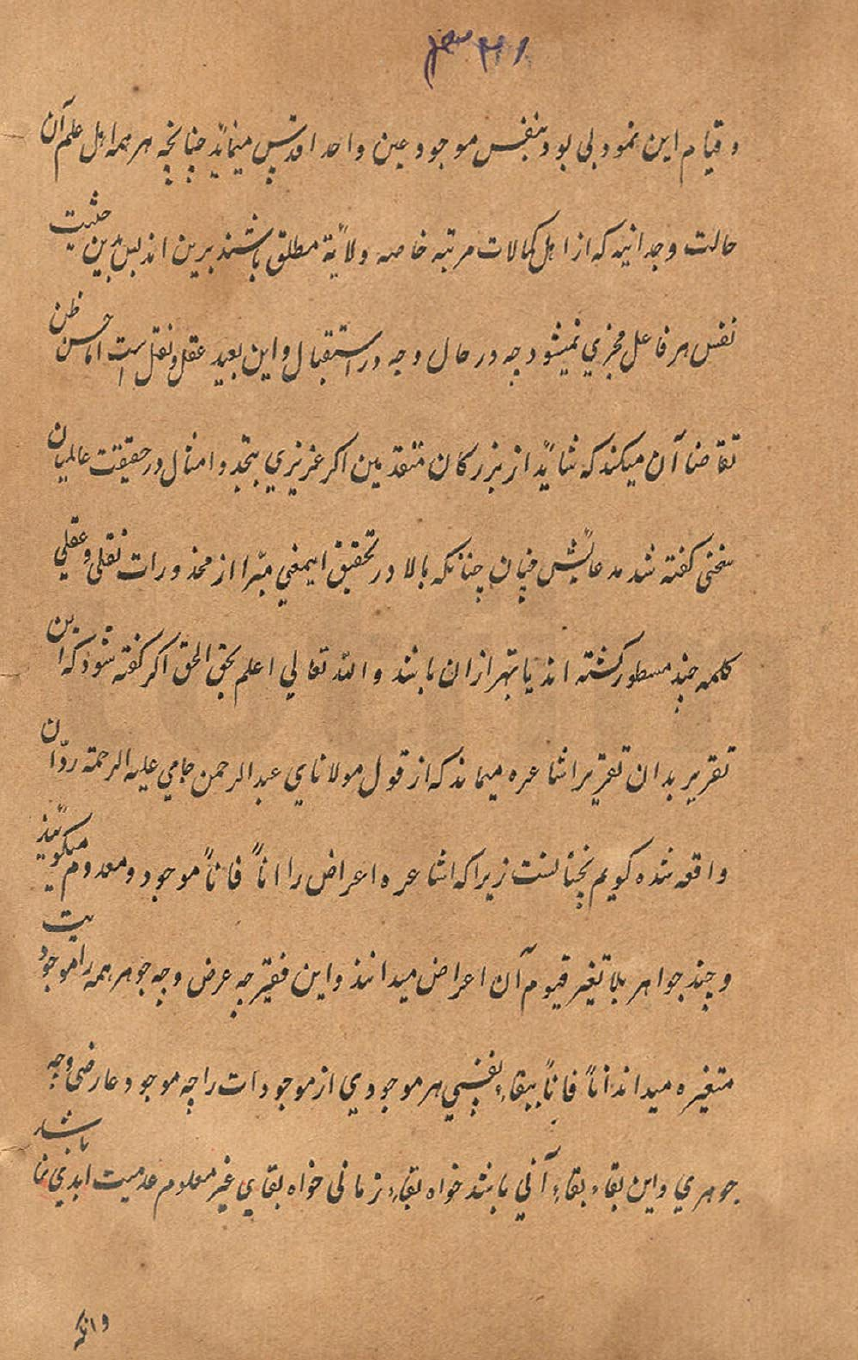 و قیام این نمود بی بود بنفس موجود عین واحد اقدس مینماید چنانچه هر همه اهل علم آن
حالت وجدانیه که از اهل کمالات مرتبه خاصه ولایة مطلق باشند برین اند پس بدین حیثیت
نفس هر فاعل مجزي نمیشود چه در حال وچه در استقبال و این بعید عقل و نقل است اما حسن ظن
تقاضا آن میکند که شاید از بزرگان متقدمین اکر عزیزي بتجدد امثال در حقیقت عالمیان
سخنی کفته شد مدعایش چنان چنانکه بالا در تحقیق اینمعني مبّرا از محذورات نقلی و عقلي
کلمه چند مسطور کشته اند یا بهتر ازان باشند والله تعالي اعلم بحق الحق اکر کفته شود که این
تقریر بدان تقریر اشاعره میماند که از قول مولاناي عبد الرحمن جامي علیه الرحمة ردّ آن
واقعه شده کویم نچنانست زیرا که اشاعره اعراض را اناً فاناً موجود و معدوم میکویند
و چند جواهر بلا تغیر قیوم آن اعراض میدانند و این فقیر چه عرض وچه جوهر همه را موجودیت
متغیره میداند اناً فاناً ببقاء نفسي هر موجودي از موجودات را چه موجود عارضي وچه
جوهري و این بقاء بقاء آني باشد خواه بقاء زماني خواه بقاي غیر معلوم عدمیت ابدي نما باشد
وانکه